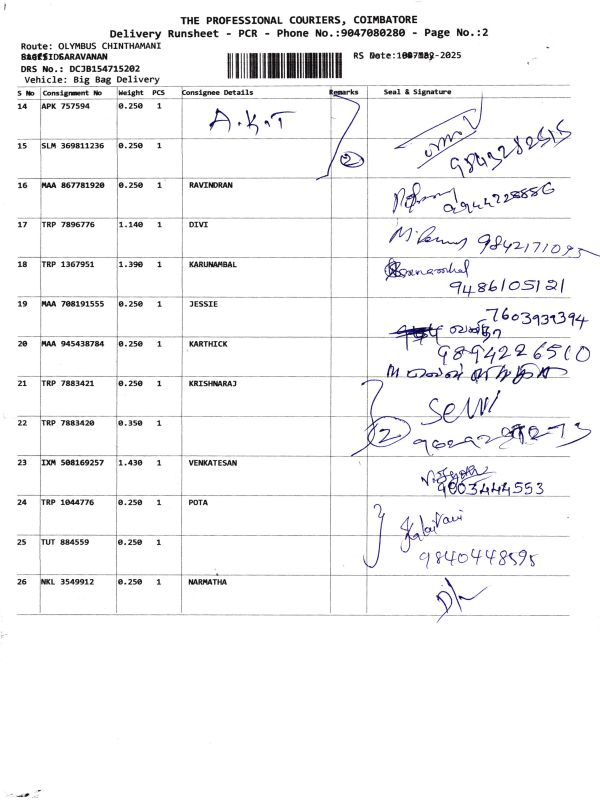 THE PROFESSIONAL COURIERS, COIMBATORE
Delivery Runsheet - PCR - Phone No.:9047080280 - Page No.:2
Route: OLYMBUS CHINTHAMANI
SARAVANAN
RS Date: -2025
DRS No.: DCJB154715202
Vehicle: Big Bag Delivery
S No Consignment No Weight PCS Consignee Details Remarks Seal & Signature
14 APK 757594 0.250 1 A.K.T
15 SLM 369811236 0.250 1 2 9843282515
16 MAA 867781920 0.250 1 RAVINDRAN
17 TRP 7896776 1.140 1 DIVI 9842171095
18 TRP 1367951 1.390 1 KARUNAMBAL 9486105121
19 MAA 708191555 0.250 1 JESSIE 7603939394
20 MAA 945438784 0.250 1 KARTHICK 9894226510
21 TRP 7883421 0.250 1 KRISHNARAJ
22 TRP 7883420 0.350 1 2
23 IXM 508169257 1.430 1 VENKATESAN 9003444553
24 TRP 1044776 0.250 1 POTA Kalaivani
25 TUT 884559 0.250 1 9840448595
26 NKL 3549912 0.250 1 NARMATHA